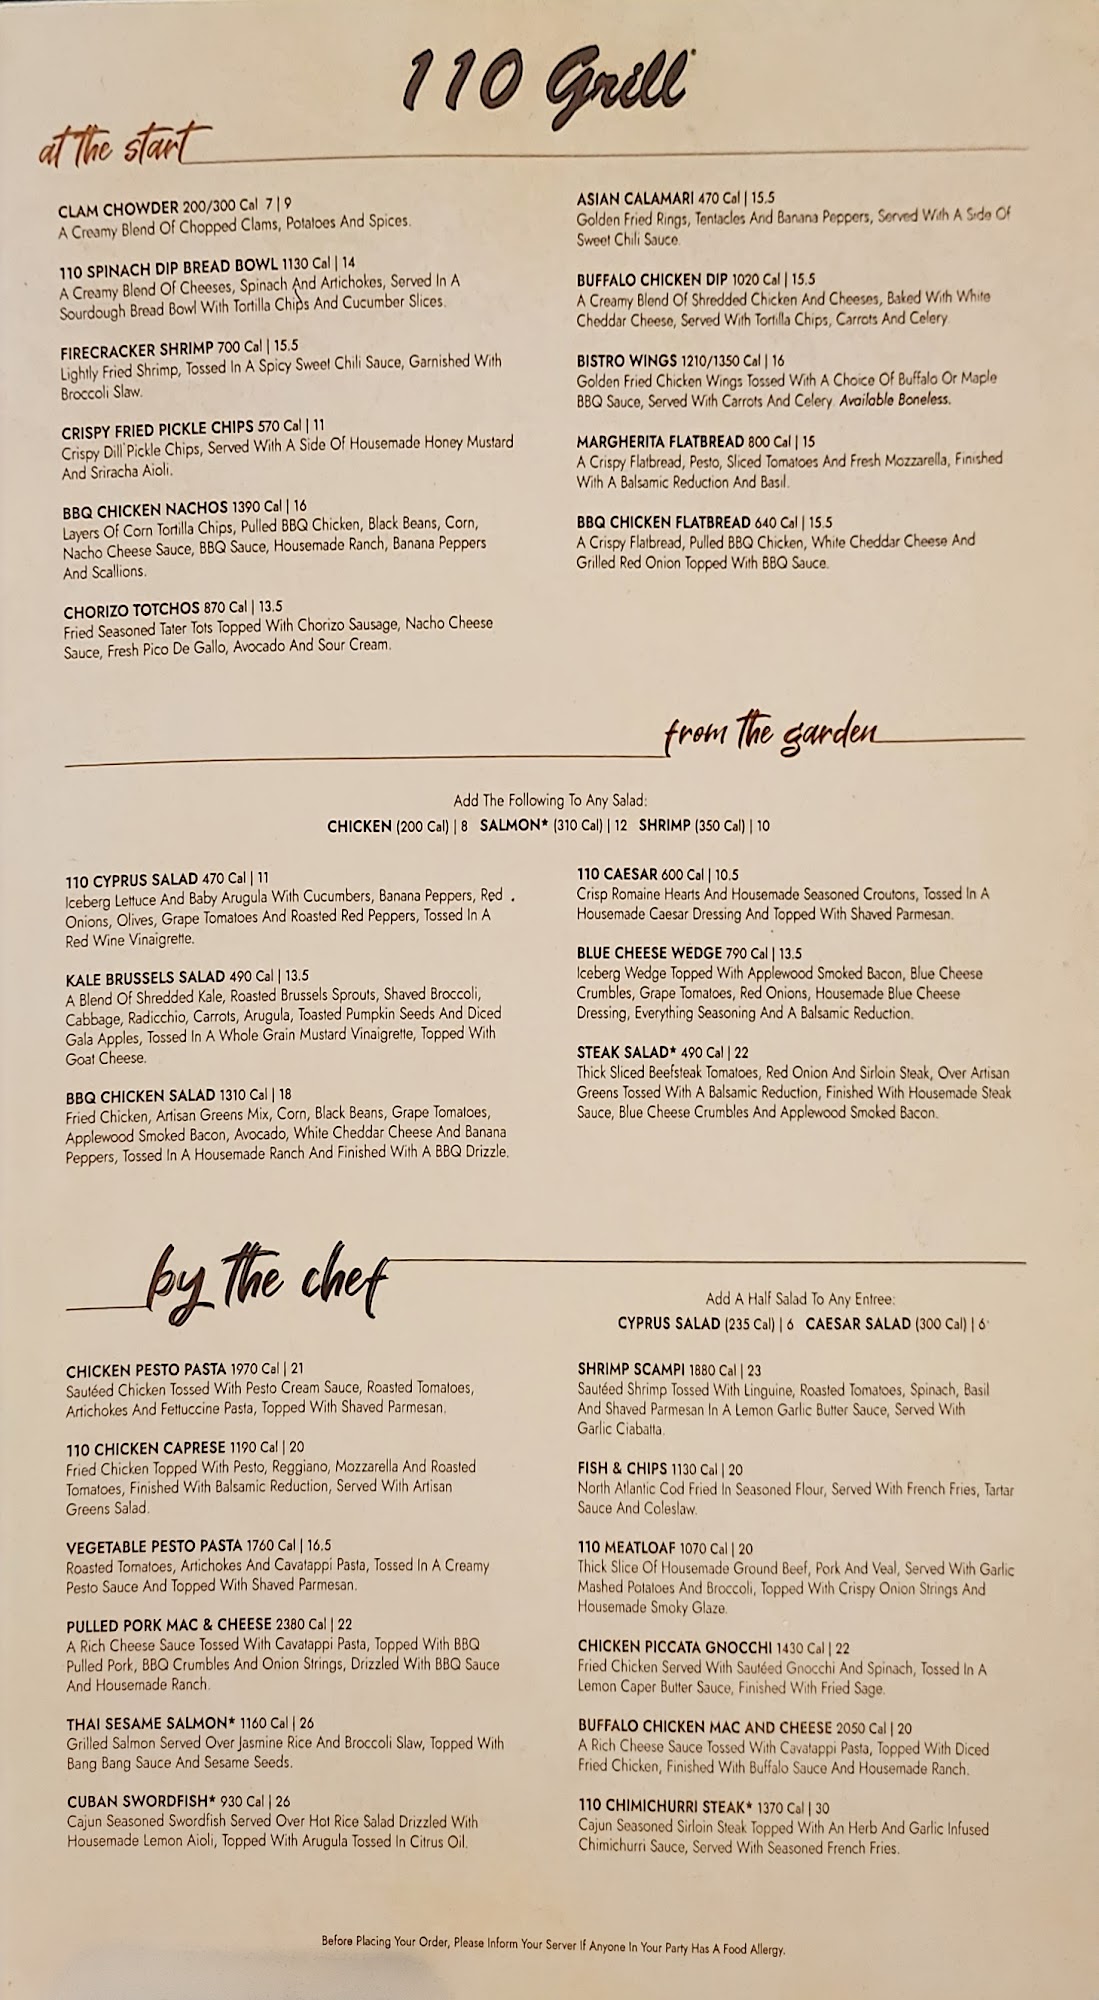 110 Grill
at the start
CLAM CHOWDER 200/300 Cal 7 | 9
A Creamy Blend Of Chopped Clams, Potatoes And Spices.
110 SPINACH DIP BREAD BOWL 1130 Cal | 14
A Creamy Blend Of Cheeses, Spinach And Artichokes, Served In A
Sourdough Bread Bowl With Tortilla Chips And Cucumber Slices.
FIRECRACKER SHRIMP 700 Cal | 15.5
Lightly Fried Shrimp, Tossed In A Spicy Sweet Chili Sauce, Garnished With
Broccoli Slaw.
CRISPY FRIED PICKLE CHIPS 570 Cal | 11
Crispy Dill Pickle Chips, Served With A Side Of Housemade Honey Mustard
And Sriracha Aioli.
BBQ CHICKEN NACHOS 1390 Cal | 16
Layers Of Corn Tortilla Chips, Pulled BBQ Chicken, Black Beans, Corn,
Nacho Cheese Sauce, BBQ Sauce, Housemade Ranch, Banana Peppers
And Scallions.
CHORIZO TOTCHOS 870 Cal | 13.5
Fried Seasoned Tater Tots Topped With Chorizo Sausage, Nacho Cheese
Sauce, Fresh Pico De Gallo, Avocado And Sour Cream.
ASIAN CALAMARI 470 Cal | 15.5
Golden Fried Rings, Tentacles And Banana Peppers, Served With A Side Of
Sweet Chili Sauce.
BUFFALO CHICKEN DIP 1020 Cal | 15.5
A Creamy Blend Of Shredded Chicken And Cheeses, Baked With White
Cheddar Cheese, Served With Tortilla Chips, Carrots And Celery.
BISTRO WINGS 1210/1350 Cal | 16
Golden Fried Chicken Wings Tossed With A Choice Of Buffalo Or Maple
BBQ Sauce, Served With Carrots And Celery. Available Boneless.
MARGHERITA FLATBREAD 800 Cal | 15
A Crispy Flatbread, Pesto, Sliced Tomatoes And Fresh Mozzarella, Finished
With A Balsamic Reduction And Basil.
BBQ CHICKEN FLATBREAD 640 Cal | 15.5
A Crispy Flatbread, Pulled BBQ Chicken, White Cheddar Cheese And
Grilled Red Onion Topped With BBQ Sauce.
from the garden
Add The Following To Any Salad:
CHICKEN (200 Cal) | 8 SALMON* (310 Cal) | 12 SHRIMP (350 Cal) | 10
110 CYPRUS SALAD 470 Cal | 11
Iceberg Lettuce And Baby Arugula With Cucumbers, Banana Peppers, Red
Onions, Olives, Grape Tomatoes And Roasted Red Peppers, Tossed In A
Red Wine Vinaigrette.
KALE BRUSSELS SALAD 490 Cal | 13.5
A Blend Of Shredded Kale, Roasted Brussels Sprouts, Shaved Broccoli,
Cabbage, Radicchio, Carrots, Arugula, Toasted Pumpkin Seeds And Diced
Gala Apples, Tossed In A Whole Grain Mustard Vinaigrette, Topped With
Goat Cheese.
BBQ CHICKEN SALAD 1310 Cal | 18
Fried Chicken, Artisan Greens Mix, Corn, Black Beans, Grape Tomatoes,
Applewood Smoked Bacon, Avocado, White Cheddar Cheese And Banana
Peppers, Tossed In A Housemade Ranch And Finished With A BBQ Drizzle.
110 CAESAR 600 Cal | 10.5
Crisp Romaine Hearts And Housemade Seasoned Croutons, Tossed In A
Housemade Caesar Dressing And Topped With Shaved Parmesan.
BLUE CHEESE WEDGE 790 Cal | 13.5
Iceberg Wedge Topped With Applewood Smoked Bacon, Blue Cheese
Crumbles, Grape Tomatoes, Red Onions, Housemade Blue Cheese
Dressing, Everything Seasoning And A Balsamic Reduction.
STEAK SALAD* 490 Cal | 22
Thick Sliced Beefsteak Tomatoes, Red Onion And Sirloin Steak, Over Artisan
Greens Tossed With A Balsamic Reduction, Finished With Housemade Steak
Sauce, Blue Cheese Crumbles And Applewood Smoked Bacon.
by the chef
Add A Half Salad To Any Entree:
CYPRUS SALAD (235 Cal) | 6 CAESAR SALAD (300 Cal) | 6
CHICKEN PESTO PASTA 1970 Cal | 21
Sautéed Chicken Tossed With Pesto Cream Sauce, Roasted Tomatoes,
Artichokes And Fettuccine Pasta, Topped With Shaved Parmesan.
110 CHICKEN CAPRESE 1190 Cal | 20
Fried Chicken Topped With Pesto, Reggiano, Mozzarella And Roasted
Tomatoes, Finished With Balsamic Reduction, Served With Artisan
Greens Salad.
VEGETABLE PESTO PASTA 1760 Cal | 16.5
Roasted Tomatoes, Artichokes And Cavatappi Pasta, Tossed In A Creamy
Pesto Sauce And Topped With Shaved Parmesan.
PULLED PORK MAC & CHEESE 2380 Cal | 22
A Rich Cheese Sauce Tossed With Cavatappi Pasta, Topped With BBQ
Pulled Pork, BBQ Crumbles And Onion Strings, Drizzled With BBQ Sauce
And Housemade Ranch.
THAI SESAME SALMON* 1160 Cal | 26
Grilled Salmon Served Over Jasmine Rice And Broccoli Slaw, Topped With
Bang Bang Sauce And Sesame Seeds.
CUBAN SWORDFISH* 930 Cal | 26
Cajun Seasoned Swordfish Served Over Hot Rice Salad Drizzled With
Housemade Lemon Aioli, Topped With Arugula Tossed In Citrus Oil.
SHRIMP SCAMPI 1880 Cal | 23
Sautéed Shrimp Tossed With Linguine, Roasted Tomatoes, Spinach, Basil
And Shaved Parmesan In A Lemon Garlic Butter Sauce, Served With
Garlic Ciabatta.
FISH & CHIPS 1130 Cal | 20
North Atlantic Cod Fried In Seasoned Flour, Served With French Fries, Tartar
Sauce And Coleslaw.
110 MEATLOAF 1070 Cal | 20
Thick Slice Of Housemade Ground Beef, Pork And Veal, Served With Garlic
Mashed Potatoes And Broccoli, Topped With Crispy Onion Strings And
Housemade Smoky Glaze.
CHICKEN PICCATA GNOCCHI 1430 Cal | 22
Fried Chicken Served With Sautéed Gnocchi And Spinach, Tossed In A
Lemon Caper Butter Sauce, Finished With Fried Sage.
BUFFALO CHICKEN MAC AND CHEESE 2050 Cal | 20
A Rich Cheese Sauce Tossed With Cavatappi Pasta, Topped With Diced
Fried Chicken, Finished With Buffalo Sauce And Housemade Ranch.
110 CHIMICHURRI STEAK* 1370 Cal | 30
Cajun Seasoned Sirloin Steak Topped With An Herb And Garlic Infused
Chimichurri Sauce, Served With Seasoned French Fries.
Before Placing Your Order, Please Inform Your Server If Anyone In Your Party Has A Food Allergy.